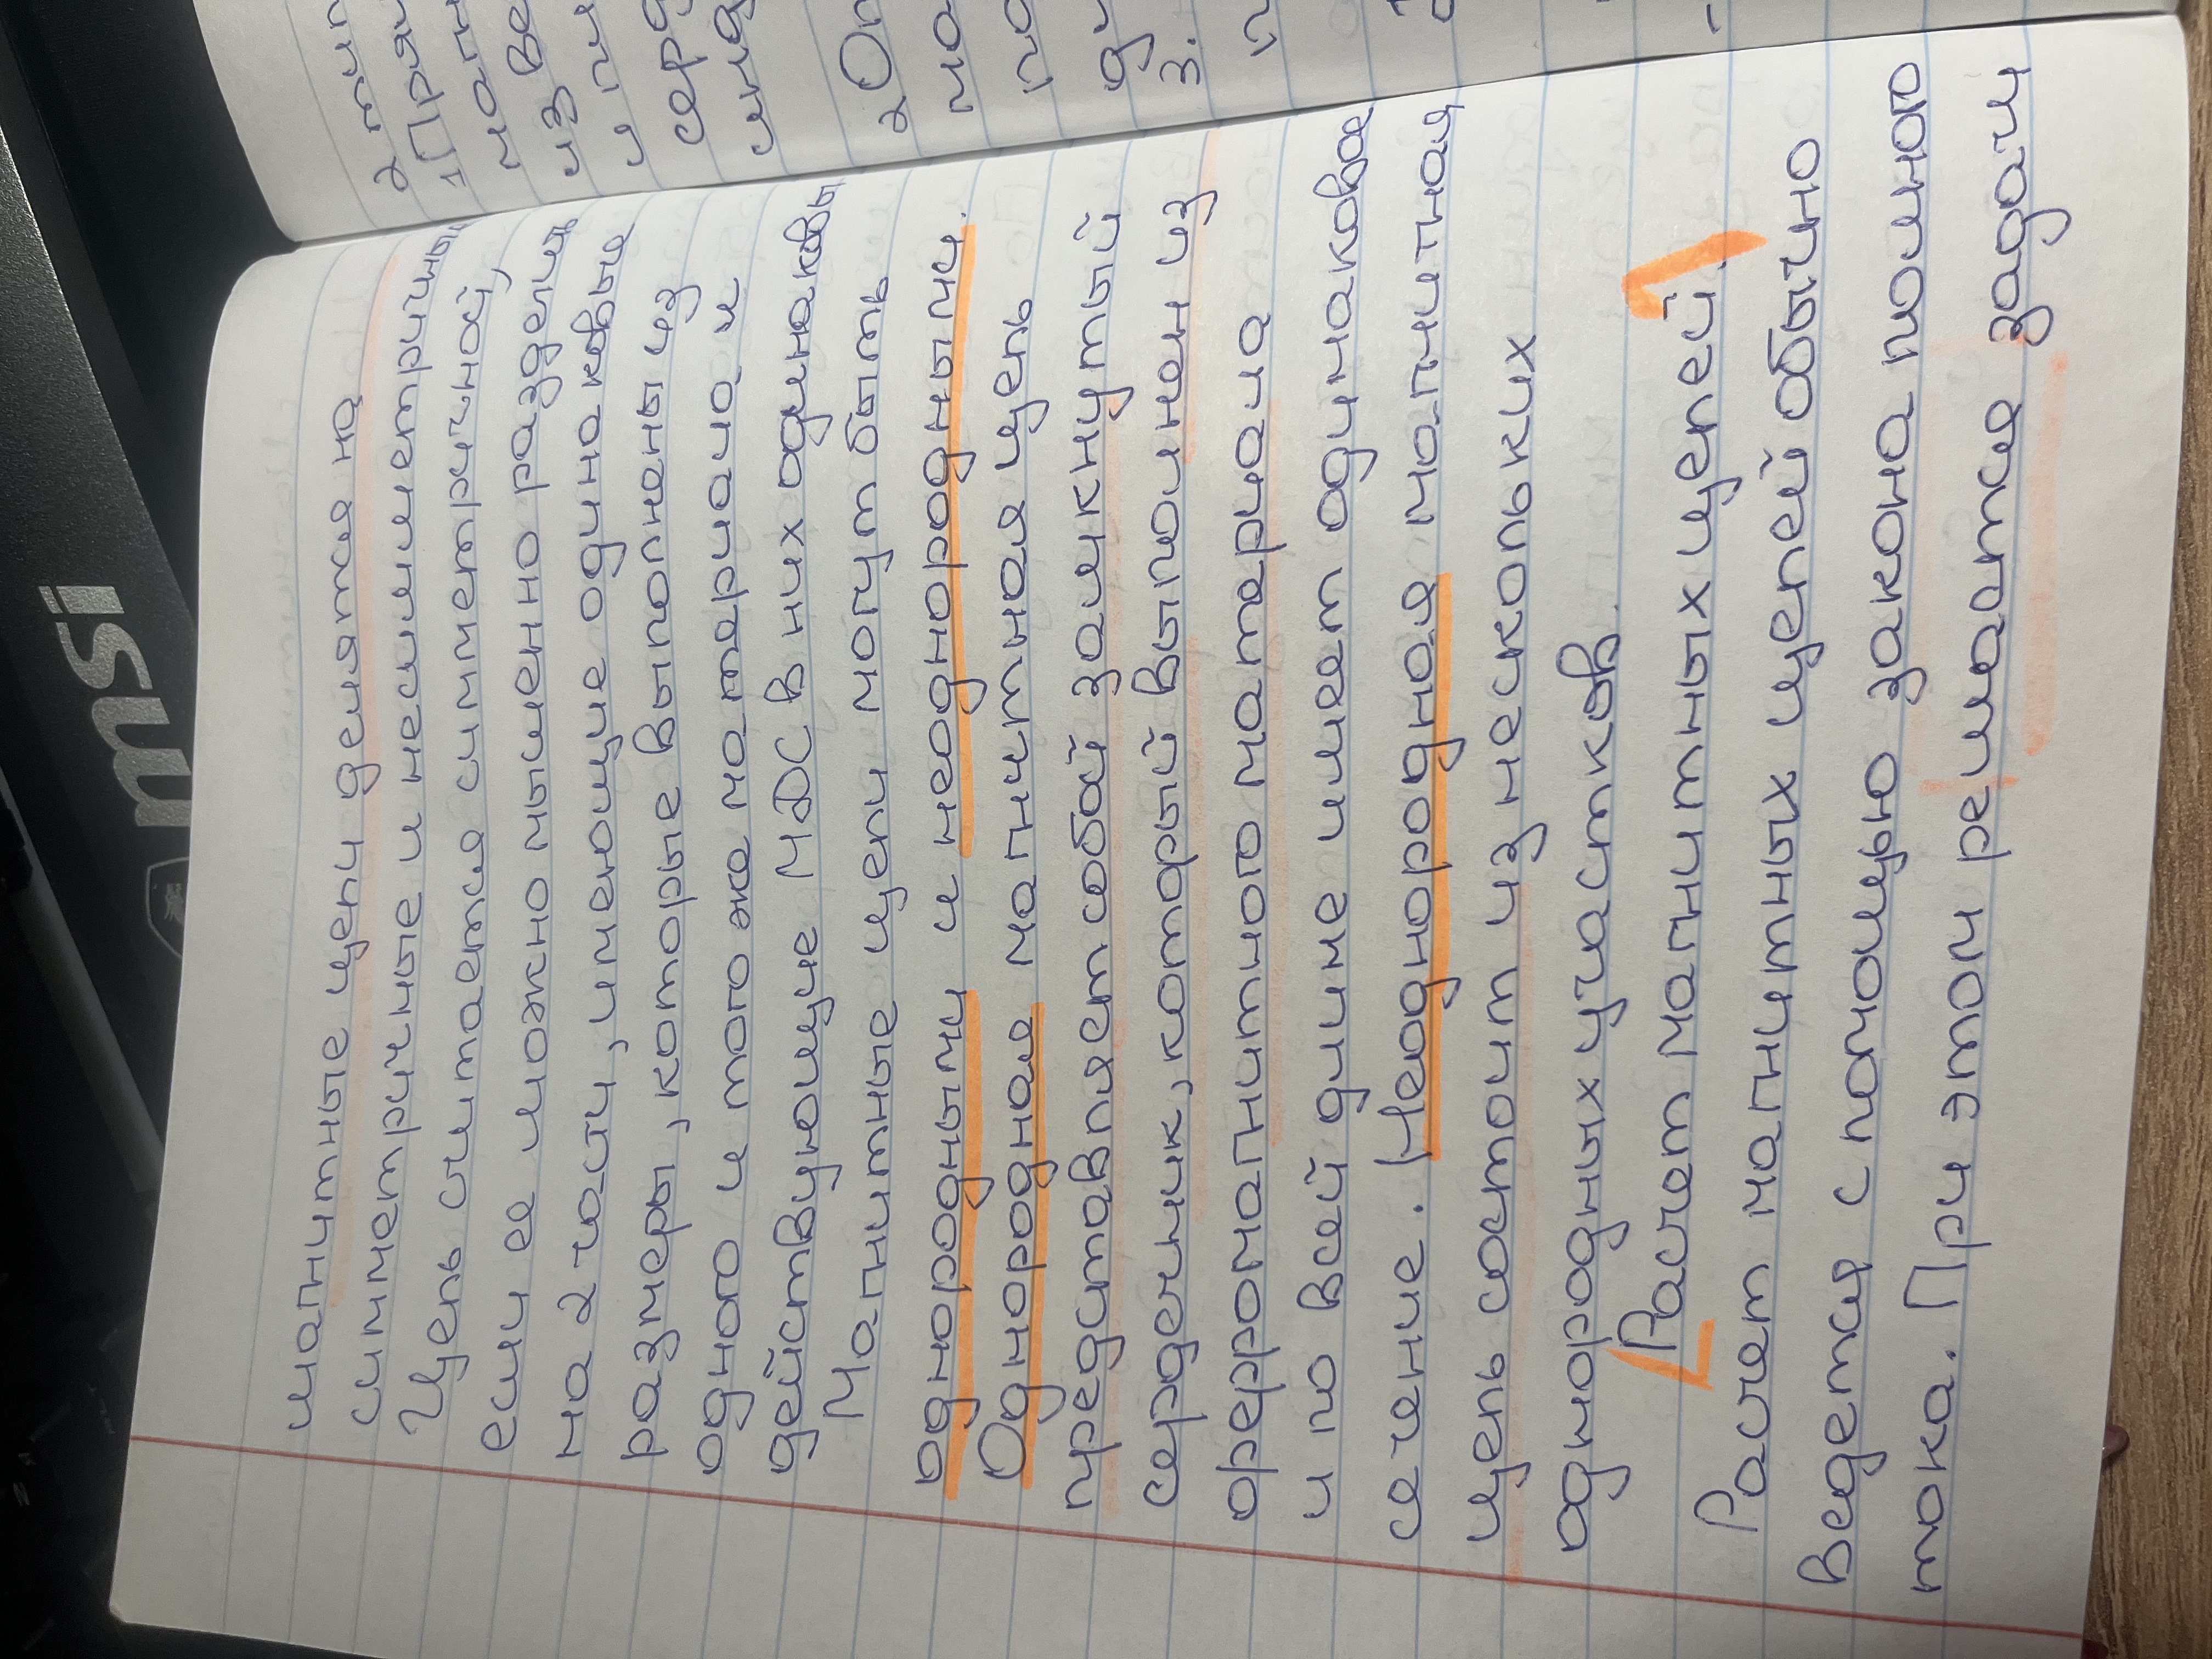 msi
магнитные цепи делятся на
симметричные и несимметричные.
Цепь считается симметричной,
если ее можно мысленно разделить
на 2 части, имеющие одинаковые
размеры, которые выполнены из
одного и того же материала и
действующие МДС в них одинаковы
Магнитные цепи могут быть
однородными и неоднородными.
Однородная магнитная цепь
представляет собой замкнутый
сердечник, который выполнен из
ферромагнитного материала
и по всей длине имеет одинаковое
сечение. Неоднородная магнитная
цепь состоит из нескольких
однородных участков.
Расчет магнитных цепей.
Расчет магнитных цепей обычно
ведется с помощью закона полного
тока. При этом решается задачи
2 тип
1 Прям
магн
из ве
и пи
серд
2 Оп
3.